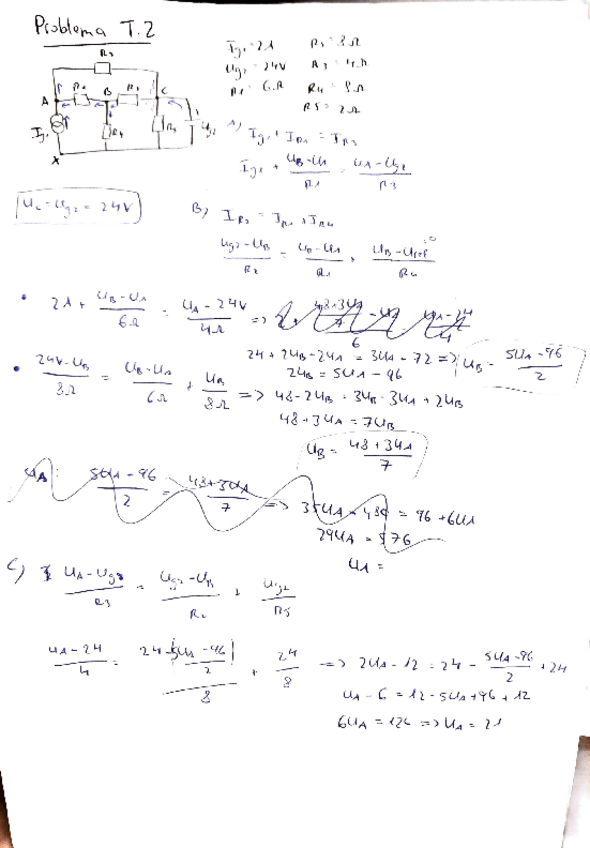 Problema T.2
R3
A B C
R4
Ig1
X
Ig1 = 2A R2 = 3Ω
Ug2 = 24V R3 = 4Ω
R1 = 6Ω R4 = 8Ω
R5 = 2Ω
A) Ig1 + IR1 = IR3
Ig1 + (UB-UA)/R1 = (UA-Ug2)/R3
Uc = Ug2 = 24V
B) IR2 = IR1 + IR4
(Ug2-UB)/R2 = (UB-UA)/R1 + (UB-Uref)/R4
• 2A + (UB-UA)/6Ω = (UA-24V)/4Ω =>
24 + 2UB - 2UA = 3UA - 72 => UB = (5UA-96)/2
2UB = 5UA - 96
• (24V-UB)/8Ω = (UB-UA)/6Ω + UB/8Ω => 48 - 2UB = 3UB - 3UA + 2UB
48 + 3UA = 7UB
UB = (48+3UA)/7
UA: (5UA-96)/2 = (48+3UA)/7 => 35UA - = 96 + 6UA
29UA = 576
UA =
C) (UA-Ug2)/R3 = (Ug2-UB)/R2 + Ug2/R5
(UA-24)/4 = (24-(5UA-96)/2)/8 + 24/8 => 2UA - 12 = 24 - (5UA-96)/2 + 24
UA - 6 = 12 - 5UA + 96 + 12
6UA = 126 => UA = 21